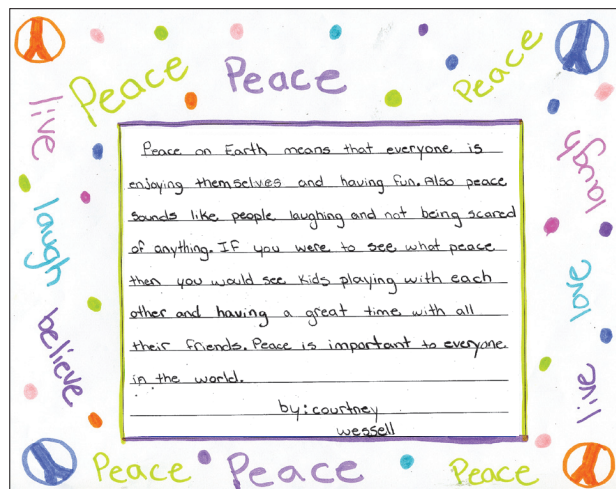 Peace
Peace
Peace
live
laugh
believe
Peace on Earth means that everyone is
enjoying themselves and having fun. Also peace
sounds like people laughing and not being scared
of anything. IF you were to see what peace
then you would see kids playing with each
other and having a great time with all
their friends. Peace is important to everyone
in the world.
by: courtney
wessell
laugh
love
live
Peace
Peace
Peace